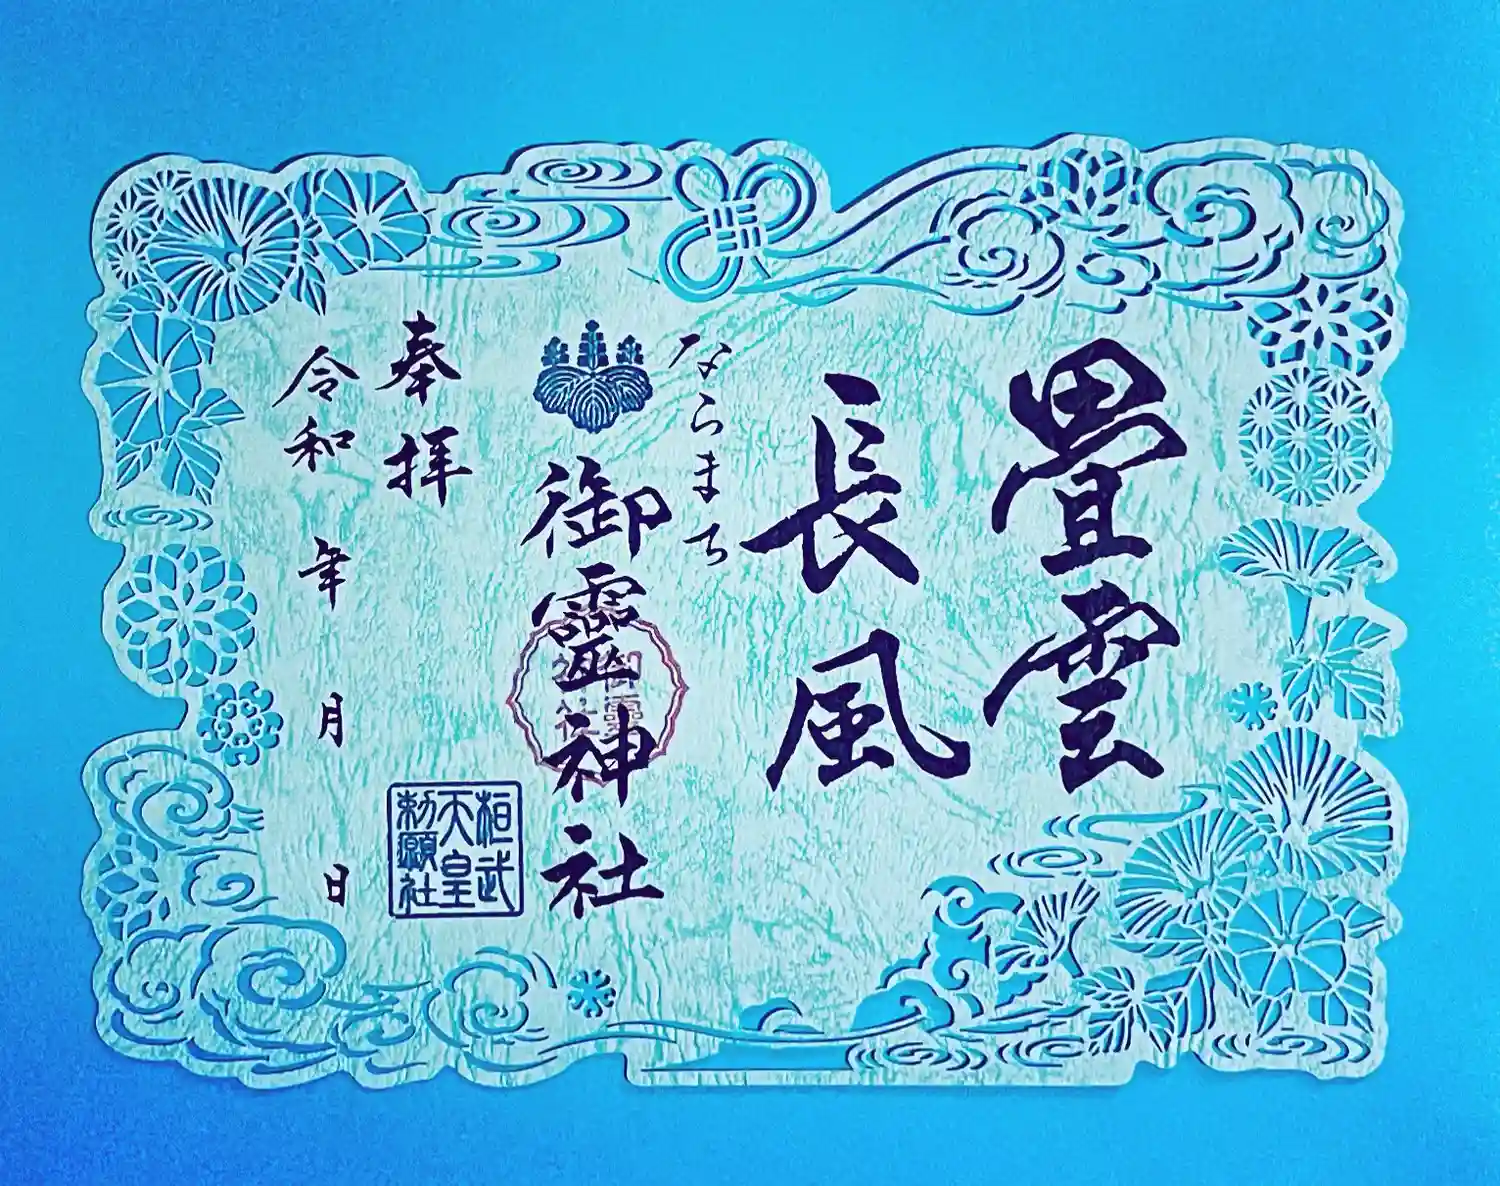 畳雲
長風
ならまち
御靈神社
御靈
神社
奉拝
桓武
天皇
勅願社
令和 年 月 日